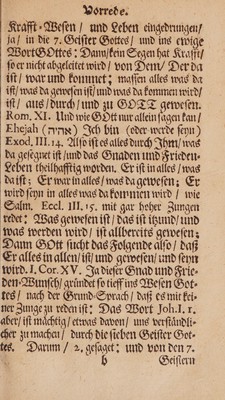 Vorrede.
Krafft-Wesen/ und Leben eingedrungen/
ja/ in die 7. Geister Gottes/ und ins ewige
Wort GOttes: Dann so ein Segen hat Krafft/
so er nicht abgeleitet wird/ von Dem/ Der da
ist/ war und kommet; massen alles was da
ist/ was da gewesen ist/ und was da kommen wird/
ist/ aus/ durch/ und zu GOTT gewesen.
Rom. XI. Und wie GOtt nur allein sagen kan/
Ehejah (אהיה) Ich bin (oder werde seyn)
Exod. III. 14. Also ist es alles durch Ihm/ was
da gesegnet ist/ und das Gnaden und Frieden-
Leben theilhafftig worden. Er ist in alles/ was
da ist; Er war in alles/ was da gewesen; Er
wird seyn in alles was da kommen wird/ wie
Salm. Eccl. III. 15. mit gar hoher Zungen
redet: Was gewesen ist/ das ist itzund/ und
was werden wird/ ist allbereits gewesen;
Dann GOtt sucht das Folgende also/ daß
Er alles in allen/ ist/ und gewesen/ und seyn
wird. I. Cor. XV. Ja dieser Gnad und Frie-
den-Wunsch/ gründet so tieff ins Wesen Got-
tes/ nach der Grund-Sprach/ daß es mit kei-
ner Zunge zu reden ist: Das Wort Joh. I. 1.
aber/ ist mächtig/ etwas davon/ uns verständli-
cher zu machen/ durch die sieben Geister Got-
tes. Darum/ 2. gesaget: und von den 7.
b Geistern